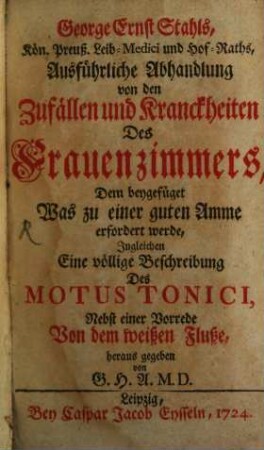 George Ernst Stahls,
Kön. Preuß. Leib-Medici und Hof-Raths,
Ausführliche Abhandlung
von den
Zufällen und Kranckheiten
Des
Frauenzimmers,
Dem beygefüget
Was zu einer guten Amme
erfordert werde,
Ingleichen
Eine völlige Beschreibung
Des
MOTUS TONICI,
Nebst einer Vorrede
Von dem weißen Fluße,
heraus gegeben
von
G. H. A. M. D.
Leipzig,
Bey Caspar Jacob Eysseln, 1724.